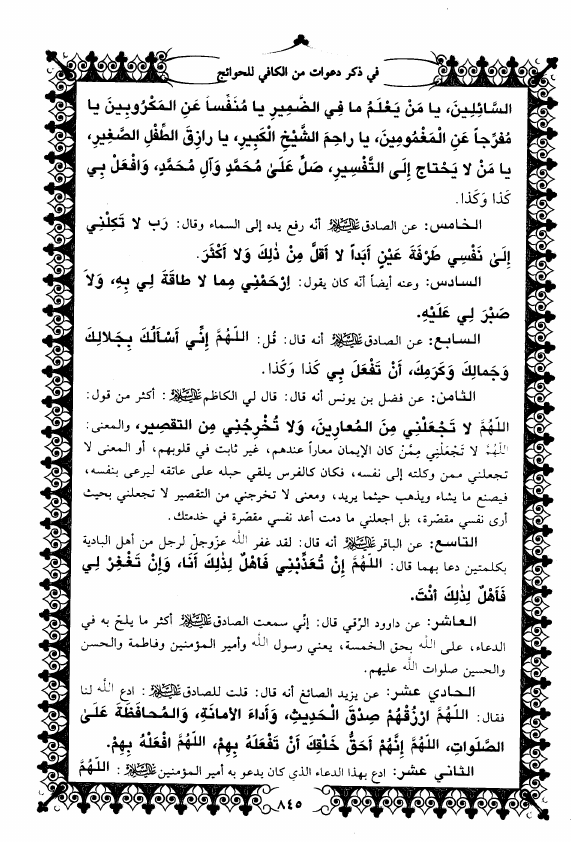 في ذكر دعوات من الكافي للحوائج
السَّائِلِينَ، يا مَنْ يَعْلَمُ ما فِي الضَّمِيرِ يا مُنَفِّساً عَنِ المَكْرُوبِينَ يا
مُفَرِّجاً عَنِ المَغْمُومِينَ، يا راحِمَ الشَّيْخِ الكَبِيرِ، يا رازِقَ الطِّفْلِ الصَّغِيرِ،
يا مَنْ لا يَحْتاج إِلَى التَّفْسِيرِ، صَلِّ عَلىٰ مُحَمَّدٍ وَآلِ مُحَمَّدٍ، وَافْعَلْ بِي
كَذا وَكَذا.
الخامس: عن الصادق عليه السلام أنّه رفع يده إلى السماء وقال: رَب لا تَكِلْنِي
إِلىٰ نَفْسِي طَرْفَةَ عَيْنٍ أَبَداً لا أَقَلَّ مِنْ ذٰلِكَ وَلا أَكْثَرَ.
السادس: وعنه أيضاً أنّه كان يقول: اِرْحَمْنِي مِما لا طاقَةَ لِي بِهِ، وَلاَ
صَبْرَ لِي عَلَيْهِ.
السابع: عن الصادق عليه السلام أنه قال: قُل: اللهُمَّ إِنِّي أَسْأَلُكَ بِجَلالِكَ
وَجَمالِكَ وَكَرَمِكَ، أَنْ تَفْعَلَ بِي كَذا وَكَذا.
الثامن: عن فضل بن يونس أنه قال: قال لي الكاظم عليه السلام: أكثر من قول:
اللهُمَّ لا تَجْعَلْنِي مِنَ المُعارِينَ، وَلا تُخْرِجْنِي مِن التقصِير، والمعنى:
اللهُمَّ لا تَجْعَلْنِي مِمَّنْ كان الإيمان معاراً عندهم، غير ثابت في قلوبهم، أو المعنى لا
تجعلني ممن وكلته إلى نفسه، فكان كالفرس يلقي حبله على عاتقه ليرعى بنفسه،
فيصنع ما يشاء ويذهب حيثما يريد، ومعنى لا تخرجني من التقصير لا تجعلني بحيث
أرى نفسي مقصّرة، بل اجعلني ما دمت أعد نفسي مقصّرة في خدمتك.
التاسع: عن الباقر عليه السلام أنه قال: لقد غفر الله عزّوجلّ لرجل من أهل البادية
بكلمتين دعا بهما قال: اللهُمَّ إِنْ تُعَذِّبْنِي فَأَهْلٌ لِذٰلِكَ أَنَا، وَإِنْ تَغْفِرْ لِي
فَأَهْلٌ لِذٰلِكَ أَنْتَ.
العاشر: عن داوود الرّقي قال: إنّي سمعت الصادق عليه السلام أكثر ما يلحّ به في
الدعاء، على الله بحق الخمسة، يعني رسول الله وأمير المؤمنين وفاطمة والحسن
والحسين صلوات الله عليهم.
الحادي عشر: عن يزيد الصائغ أنه قال: قلت للصادق عليه السلام: ادع الله لنا
فقال: اللهُمَّ ارْزُقْهُمْ صِدْقَ الْحَدِيثِ، وَأَداءَ الأَمانَةِ، وَالمُحافَظَةَ عَلىٰ
الصَّلَواتِ، اللهُمَّ إِنَّهُمْ أَحَقُّ خَلْقِكَ أَنْ تَفْعَلَهُ بِهِمْ، اللهُمَّ افْعَلْهُ بِهِمْ.
الثاني عشر: ادع بهذا الدعاء الذي كان يدعو به أمير المؤمنين عليه السلام: اللهُمَّ
٨٤٥